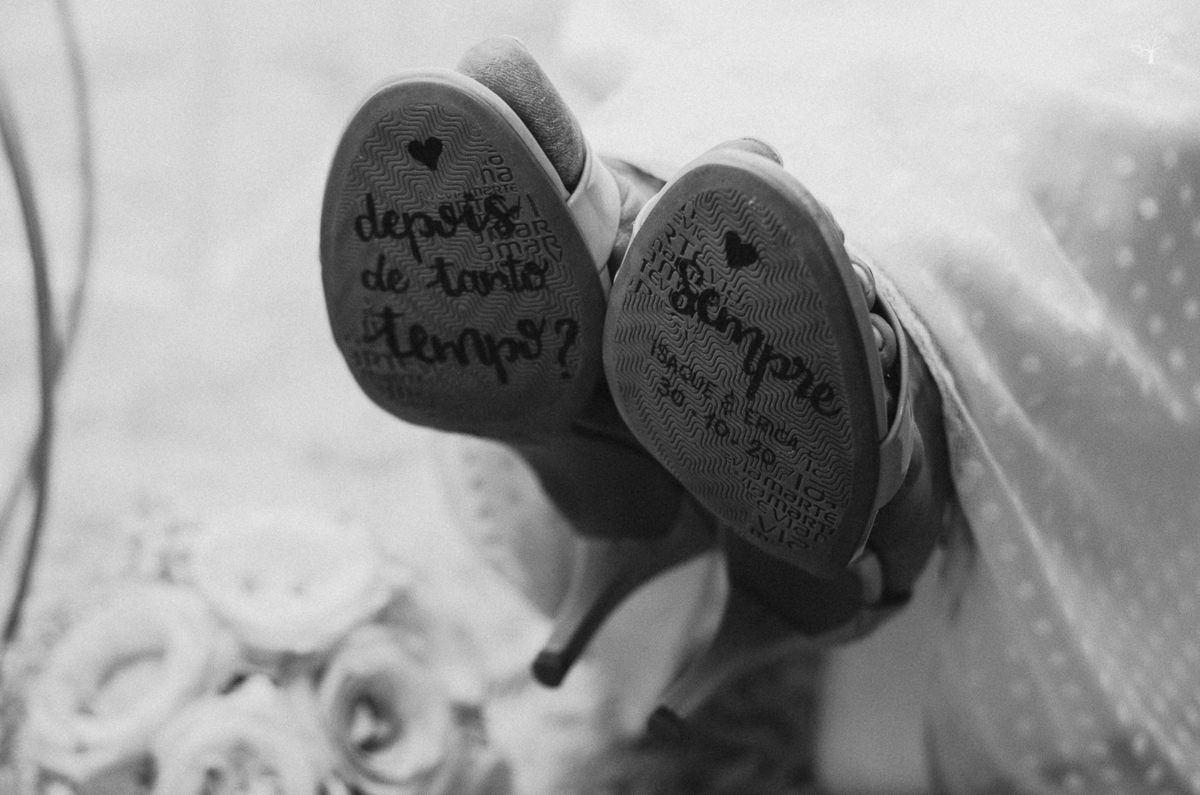 depois
de tanto
tempo?
Sempre
ISAQUE & ERICA
30-10-20
via marte